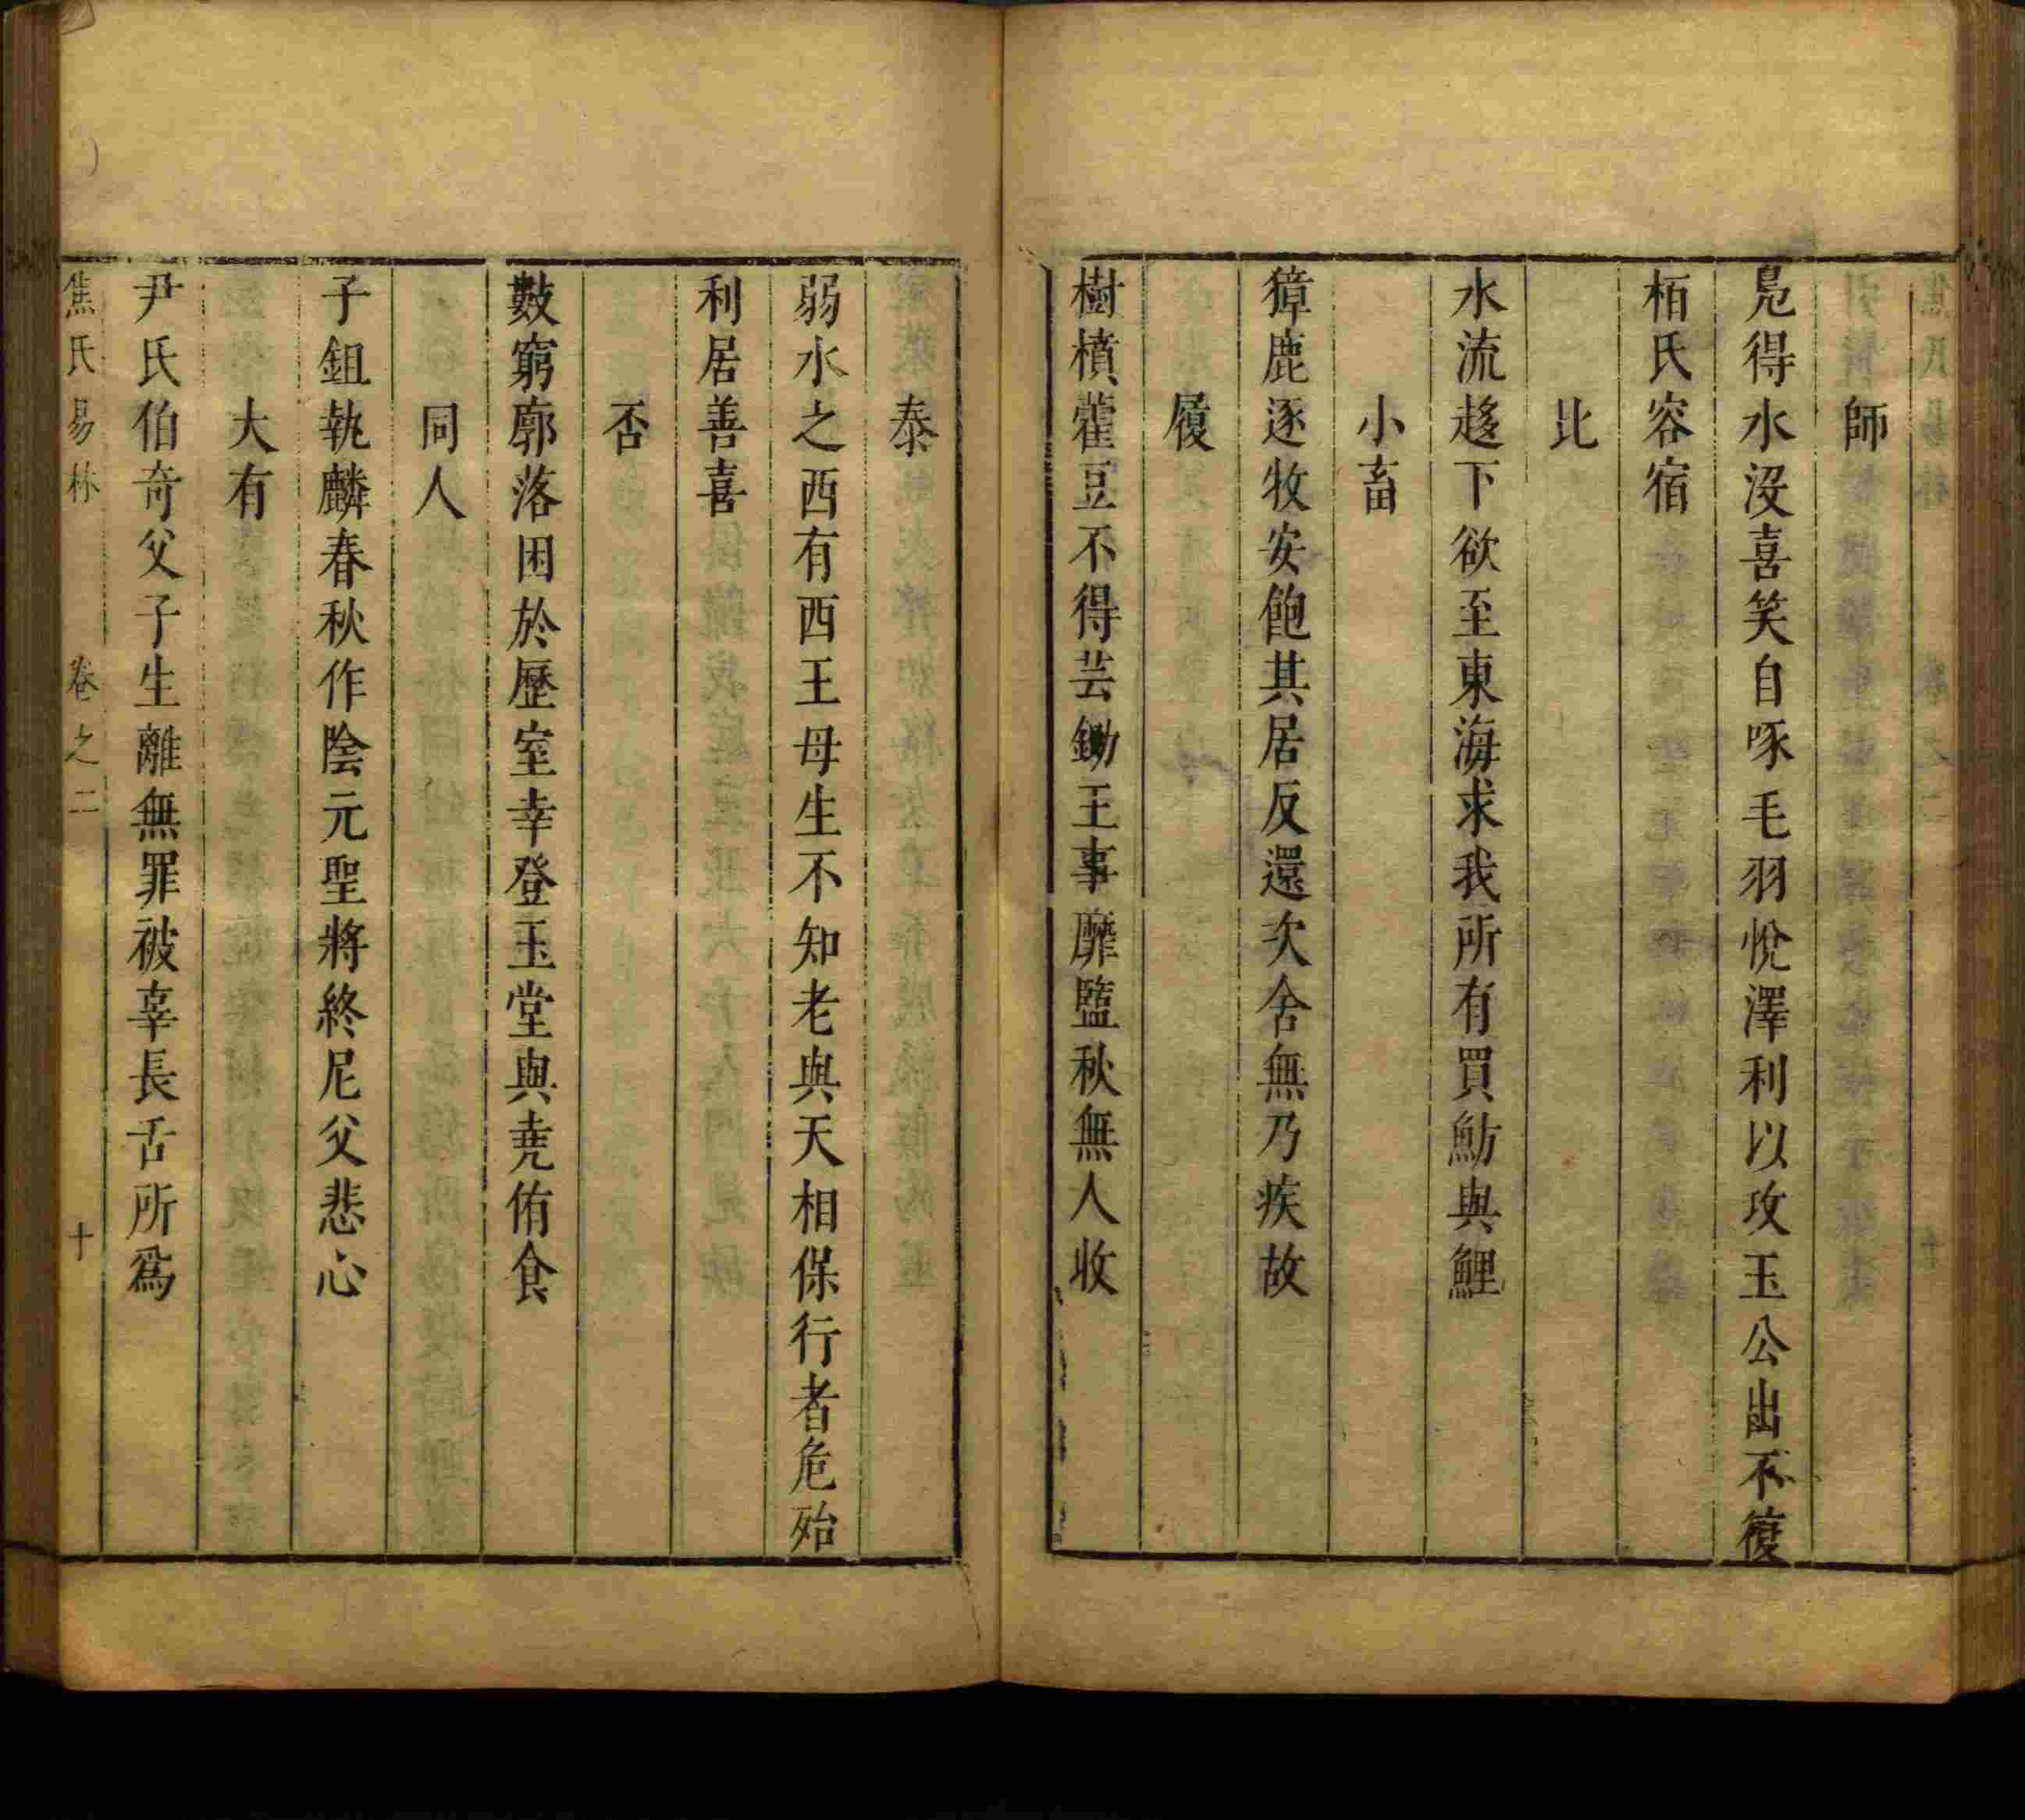 師
鳧得水没喜笑自啄毛羽悅澤利以攻玉公出不復
栢氏容宿
比
水流趍下欲至東海求我所有買魴與鯉
小畜
獐鹿逐牧安飽其居反還次舍無乃疾故
履
樹檟藿豆不得芸鋤王事靡盬秋無人收
泰
弱水之西有西王母生不知老與天相保行者危殆
利居善喜
否
數窮廓落困於歷室幸登玉堂與堯侑食
同人
子鉏執麟春秋作隂元聖將終尼父悲心
大有
尹氏伯奇父子生離無罪被辜長舌所爲
焦氏易林 卷之二 十